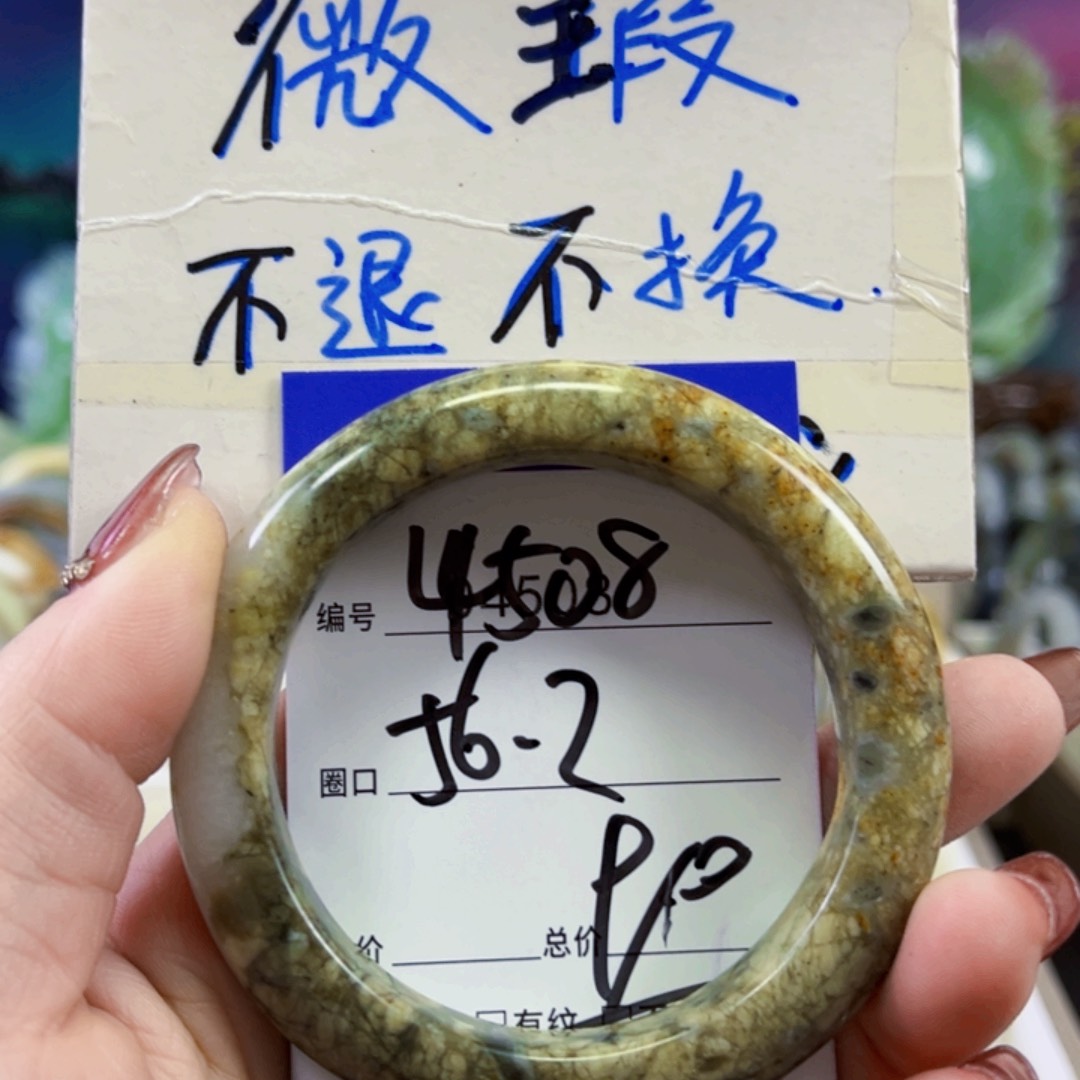 微瑕
不退不换.
编号 4508
圈口 56-2
价 总价
有纹